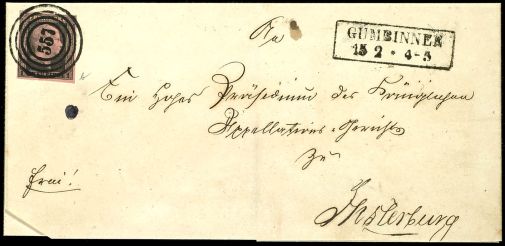 557
An
GUMBINNEN
15 2 · 4-5
Ein Hohes Präsidium des Königlichen
Appellations-Gerichts
zu
frei!
Insterburg